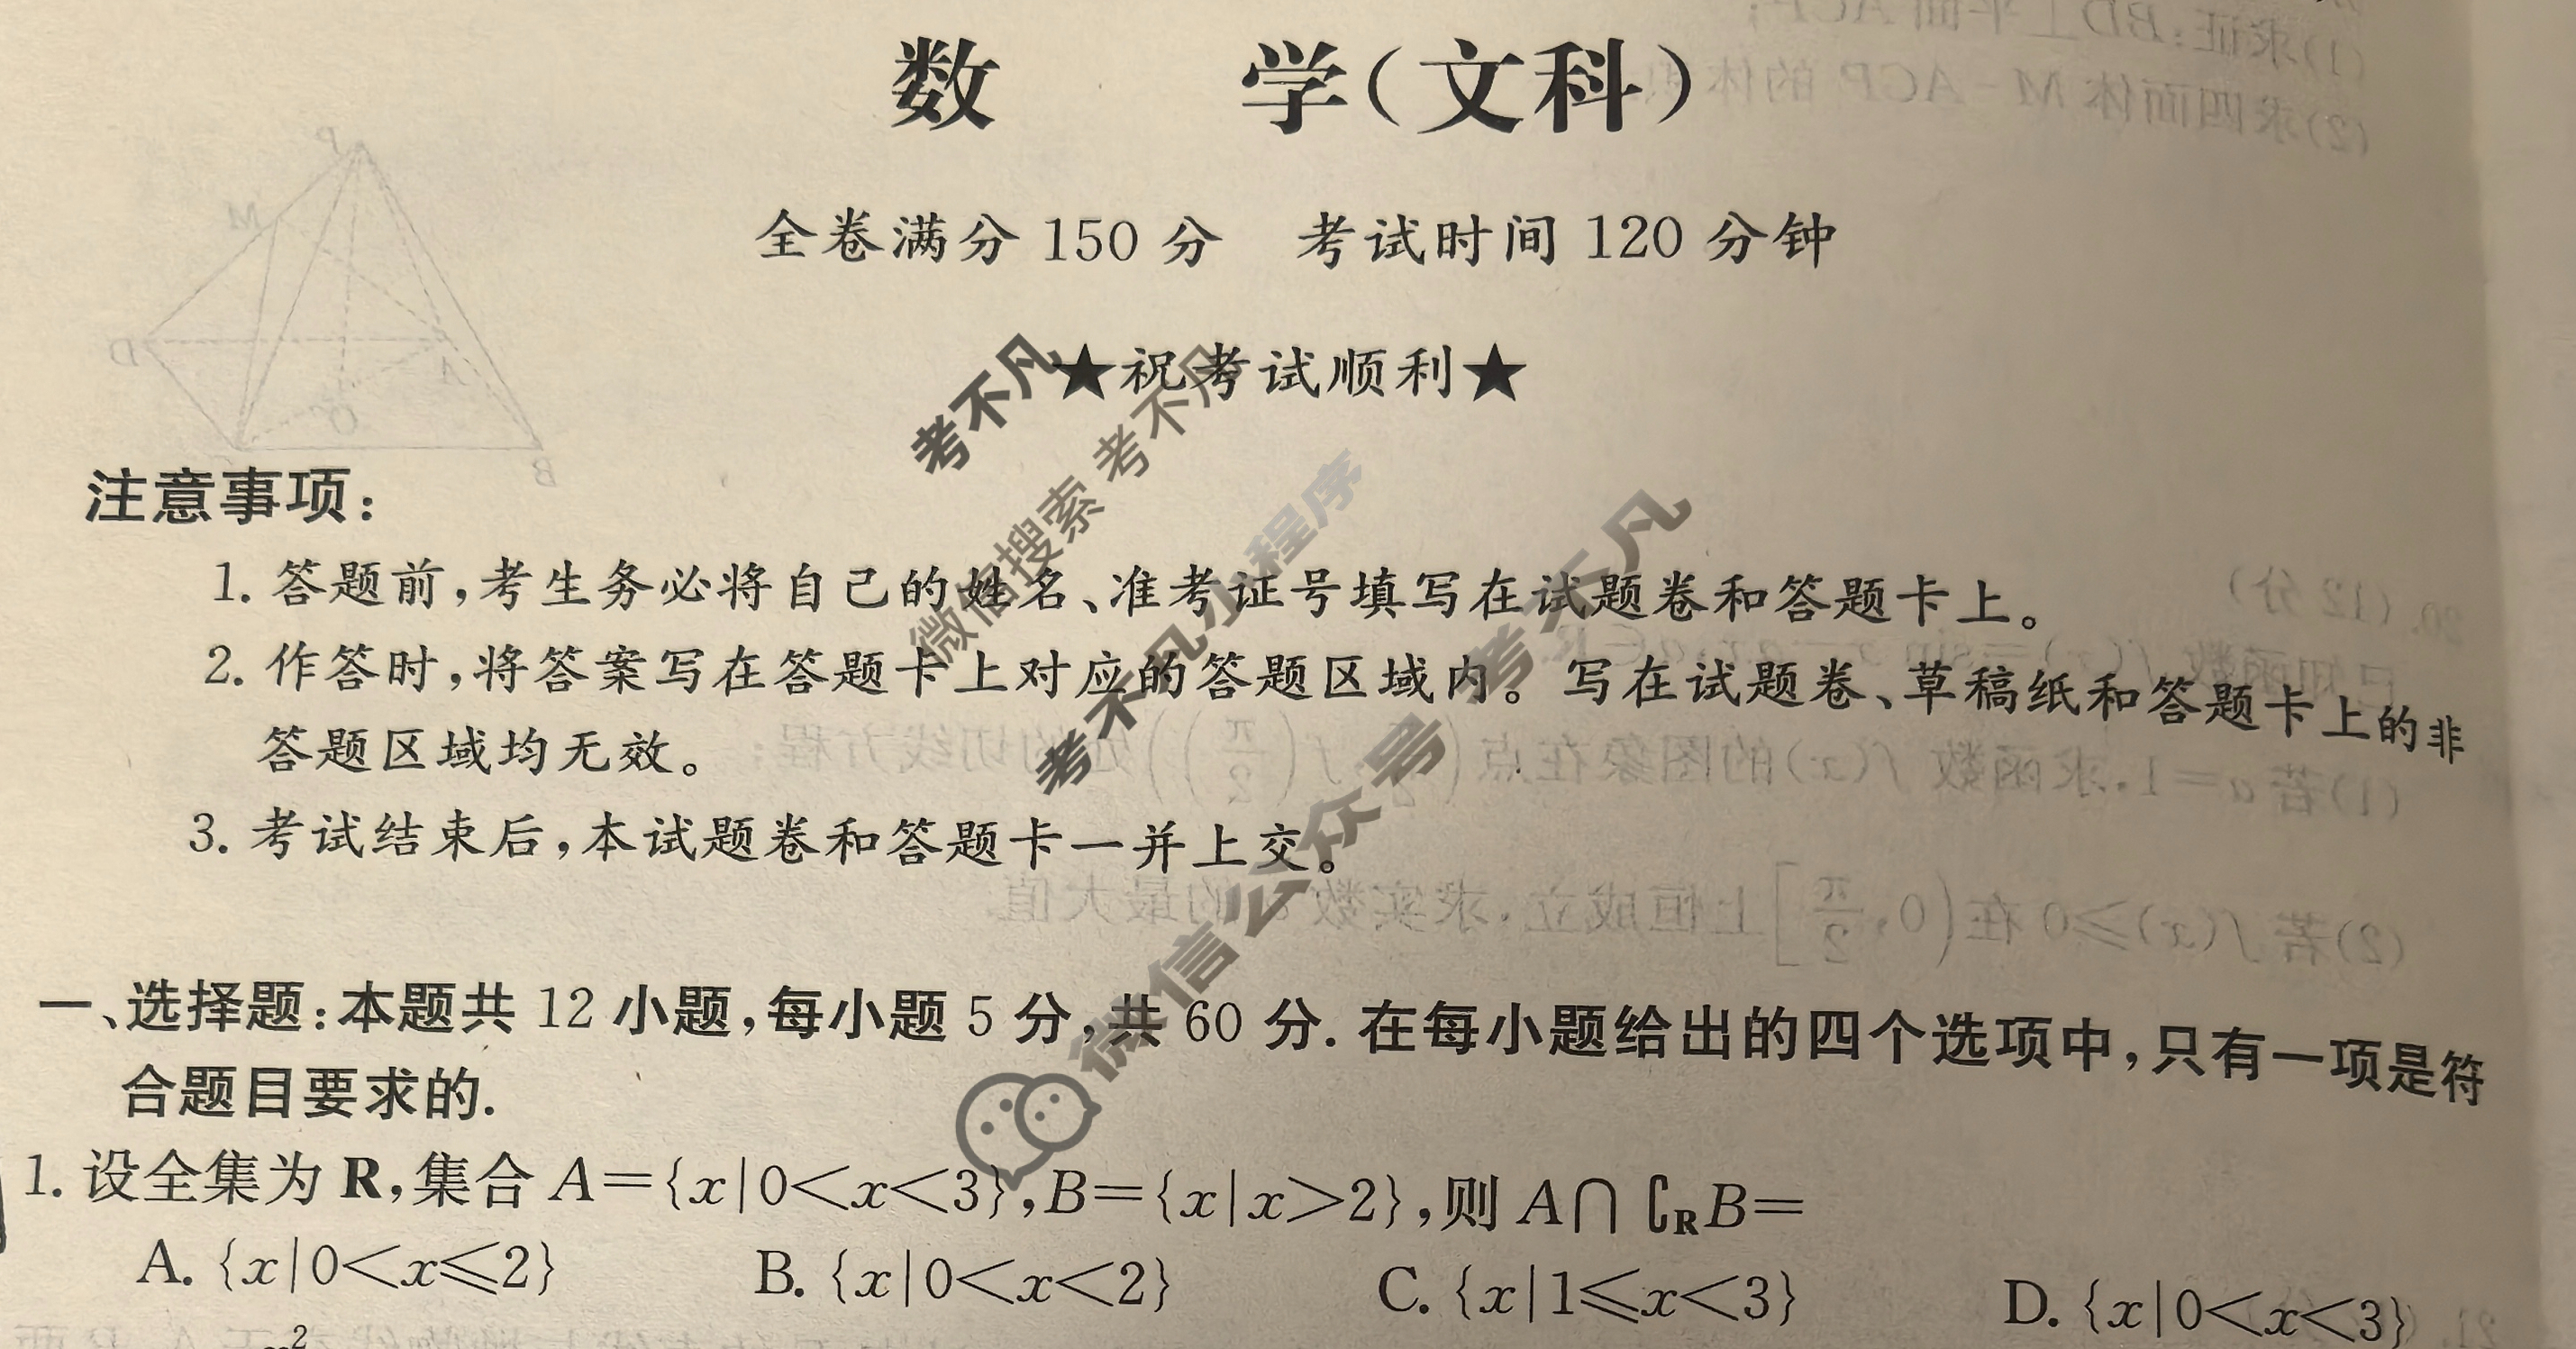 数 学(文科)
全卷满分 150 分 考试时间 120 分钟
★祝考试顺利★
注意事项:
1. 答题前,考生务必将自己的姓名、准考证号填写在试题卷和答题卡上。
2. 作答时,将答案写在答题卡上对应的答题区域内。写在试题卷、草稿纸和答题卡上的非
答题区域均无效。
3. 考试结束后,本试题卷和答题卡一并上交。
一、选择题:本题共 12 小题,每小题 5 分,共 60 分. 在每小题给出的四个选项中,只有一项是符
合题目要求的.
1. 设全集为 R,集合 A={x|0<x<3},B={x|x>2},则 A∩ ∁RB=
A. {x|0<x⩽2} B. {x|0<x<2} C. {x|1⩽x<3} D. {x|0<x<3}
考不凡
微信搜索 考不凡
考不凡小程序
微信公众号 考不凡